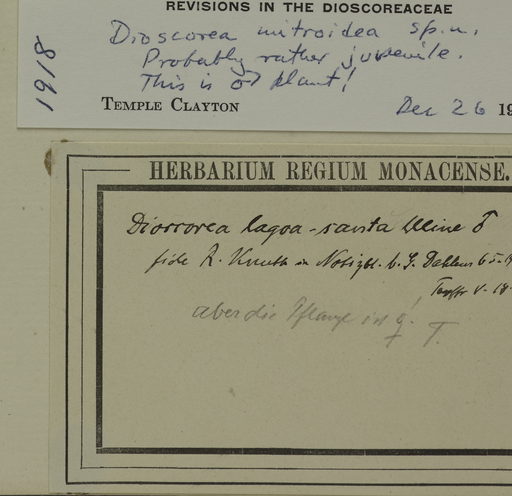 REVISIONS IN THE DIOSCOREACEAE
Dioscorea mitroidea sp. n.
Probably rather juvenile.
This is ♂ plant!
1918
TEMPLE CLAYTON Dec 26 19
HERBARIUM REGIUM MONACENSE.
Dioscorea lagoa-santa Uline ♂
fide R. Knuth in Notizbl. b. G. Dahlem
aber die Pflanze ist ♀! T.